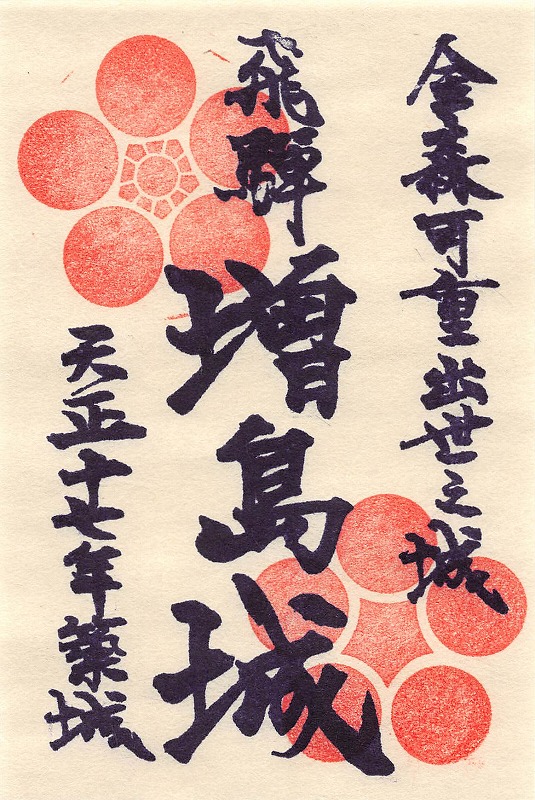 金森可重出世之城
飛騨
増島城
天正十七年築城